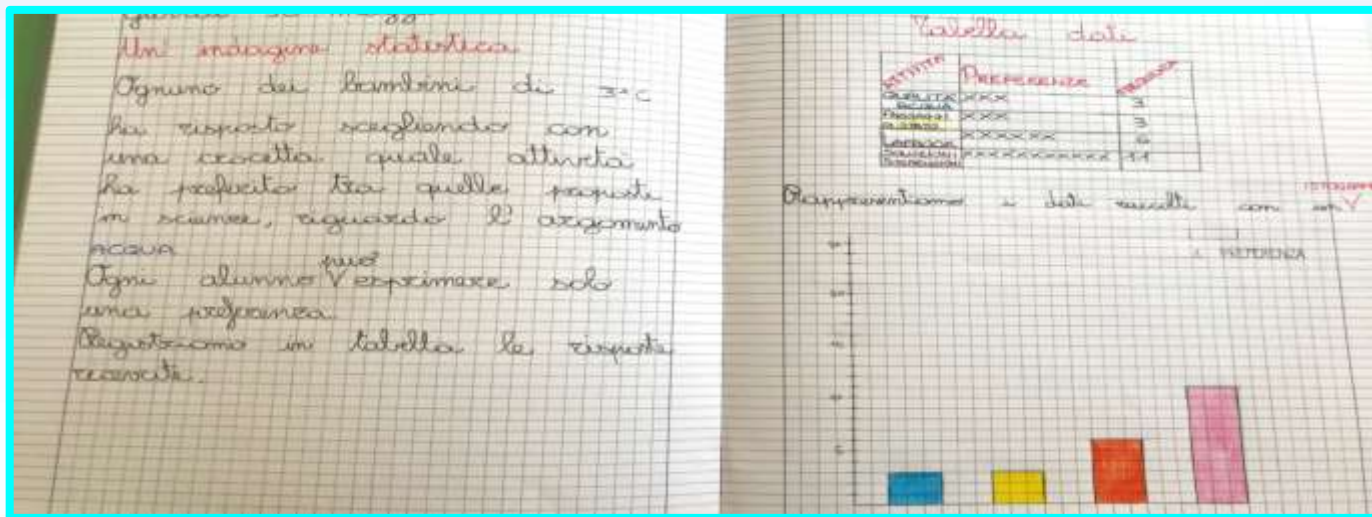 Un indagine statistica
Ognuno dei bambini di 3^C
ha risposto scegliendo con
una crocetta quale attività
ha preferito tra quelle proposte
in scienze, riguardo l' argomento
ACQUA
può
Ogni alunno V esprimere solo
una preferenza
Registriamo in tabella le risposte
ricevute.
Tabella dati
ATTIVITÀ PREFERENZE
QUALITÀ ACQUA XXX 3
XXX 3
LAPBOOK XXXXXX 6
XXXXXXXXXXX 11
ISTOGRAMMA
Rappresentiamo i dati raccolti con un V
1 PREFERENZA
5